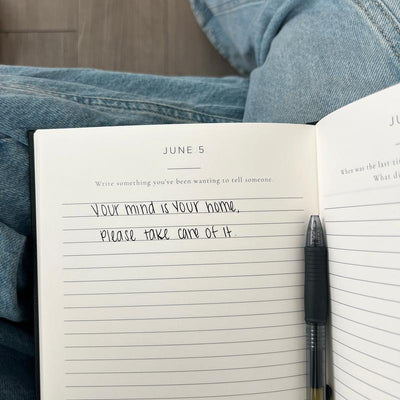 JUNE 5
Write something you've been wanting to tell someone.
Your mind is your home,
please take care of it.
JU
When was the last tim
What di